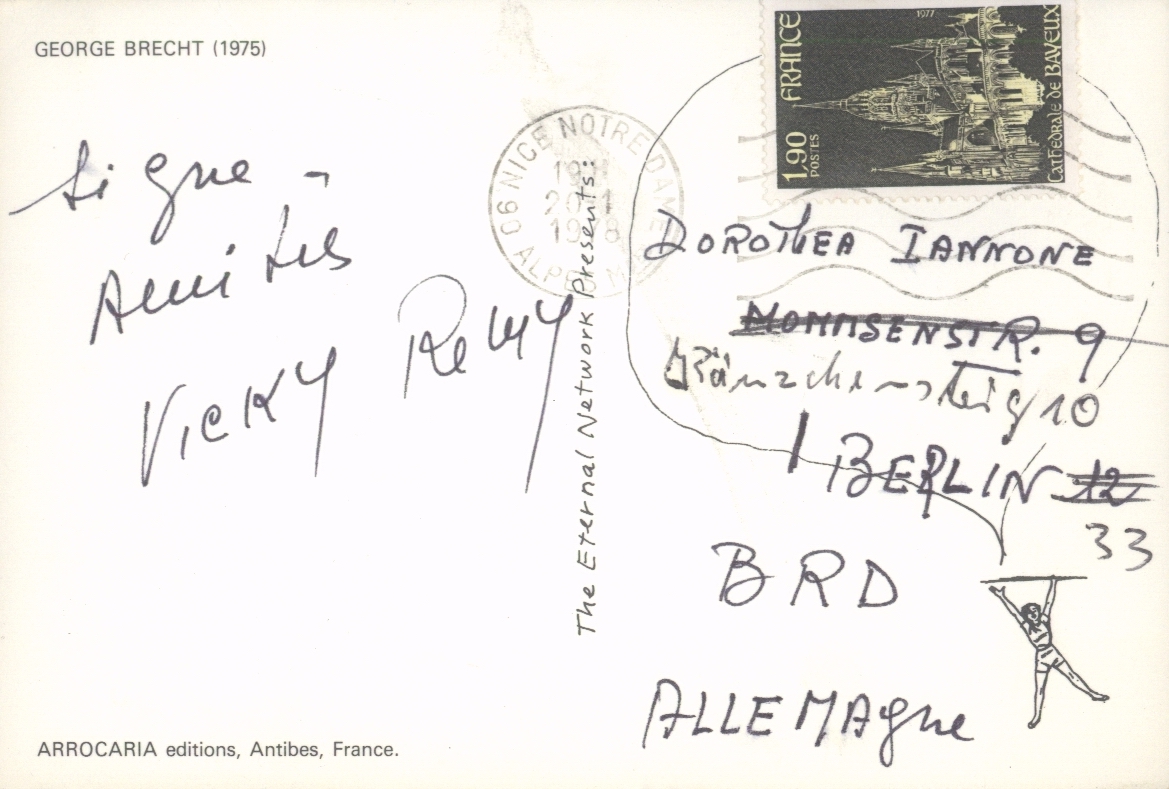 GEORGE BRECHT (1975)
Signe -
Amitiés
VICKY Remy
ARROCARIA editions, Antibes, France.
The Eternal Network Presents:
06 NICE NOTRE DAME
ALPES M
1977
FRANCE
1,90
POSTES
Cathédrale de BAYEUX
DOROTHEA IANNONE
MOMMSENSTR. 9
10
1 BERLIN 12
33
BRD
ALLEMAgne